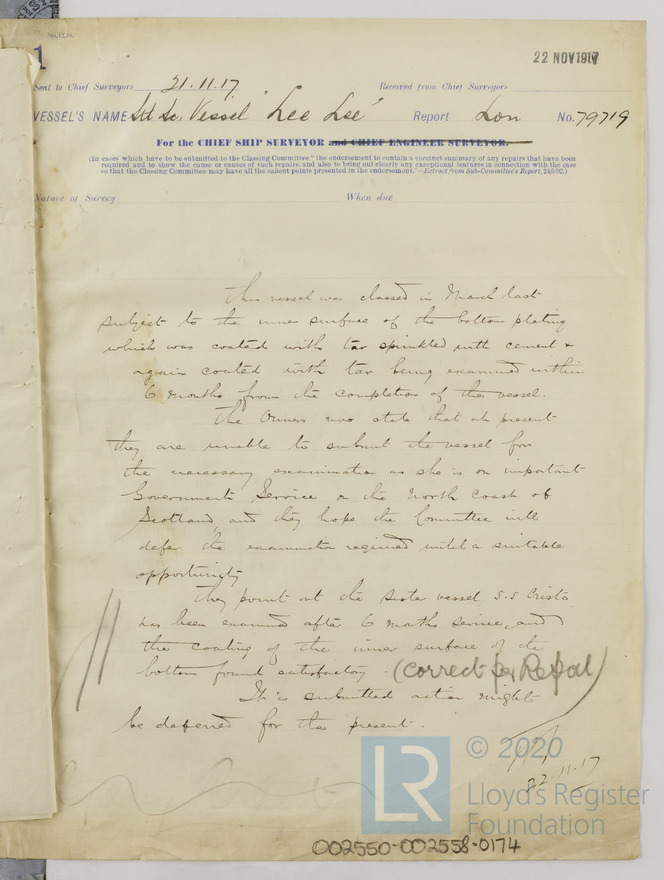 1
22 NOV 1917
Sent to Chief Surveyors 21.11.17 Received from Chief Surveyors
VESSEL'S NAME Stl Sc. Vessel "Lee Lee" Report Lon No. 79719
For the CHIEF SHIP SURVEYOR and CHIEF ENGINEER SURVEYOR.
(In cases which have to be submitted to the Classing Committee "the endorsement to contain a succinct summary of any repairs that have been
required and to show the cause or causes of such repairs, and also to bring out clearly any exceptional features in connection with the case
so that the Classing Committee may have all the salient points presented in the endorsement."—Extract from Sub-Committee's Report, 24/6/02.)
Nature of Survey When due
This vessel was classed in March last
subject to the inner surface of the bottom plating
which was coated with tar sprinkled with cement &
again coated with tar being examined within
6 months from the completion of the vessel.
The Owners now state that at present
they are unable to submit the vessel for
the necessary examination as she is on important
Government Service on the North Coast of
Scotland, and they hope the Committee will
defer the examination required until a suitable
opportunity
They point out the sister vessel S.S. Crista
has been examined after 6 months service, and
the coating of the inner surface of the
bottom found satisfactory. (correct per Report)
It is submitted action might
be deferred for the present.
22.11.17
LR © 2020
Lloyd's Register
Foundation
002550-002558-0174